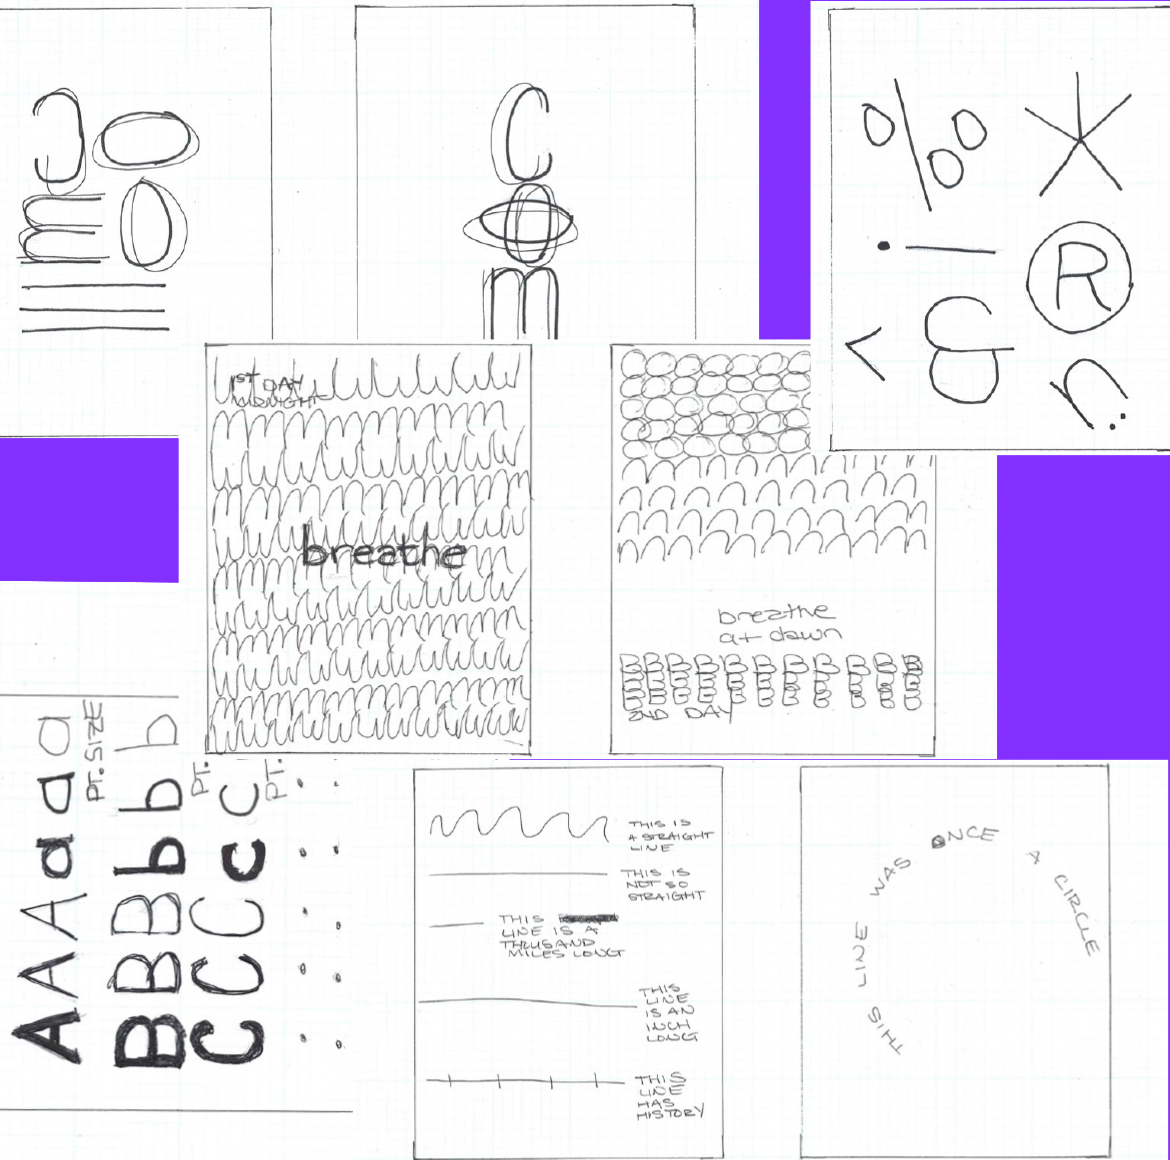 C O
m O
C
O
m
%
*
!
®
&
^
r:
1ST DAY
MIDNIGHT
breathe
breathe
at dawn
B B B B B B B B B B B
2ND DAY
A A A a a a
PT. SIZE
B B B b b b
PT.
C C C c c
PT.
THIS IS
A STRAIGHT
LINE
THIS IS
NOT SO
STRAIGHT
THIS
LINE IS A
THOUSAND
MILES LONG
THIS
LINE
IS AN
INCH
LONG
THIS
LINE
HAS
HISTORY
THIS LINE WAS ONCE A CIRCLE